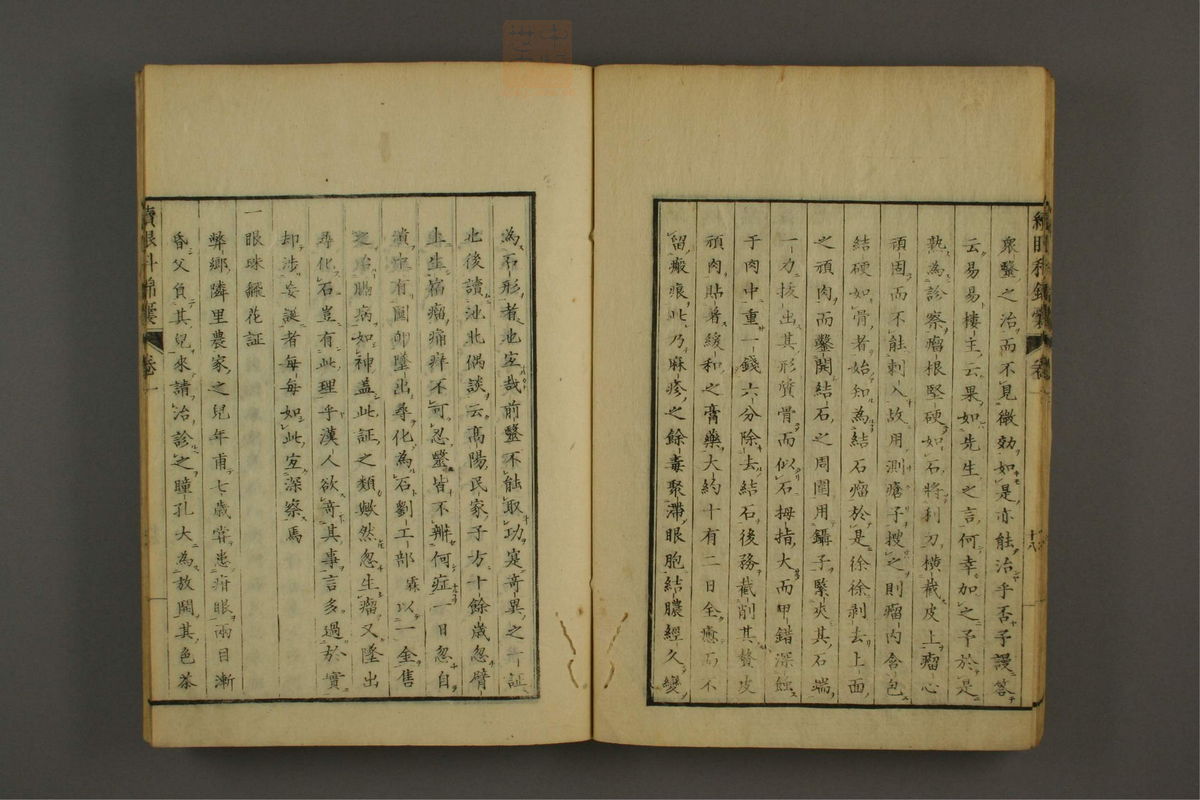 衆醫之治而不見徵効如是亦能治乎否予謾答
云易易樓主云果如先生之言何幸加之予於是
熟為診察瘤根堅硬如石將利刀橫截皮上瘤心
頑固而不能刺入故用測瘡子搜之則瘤內含包
結硬如骨者始知為結石瘤於是徐徐剝去上面
之頑肉而鑿開結石之周圍用鑷子緊夾其石端
一力拔出其形質骨而似石拇指大而甲錯深蝕
于肉中重一錢六分除去結石後務截削其贅皮
頑肉貼著緩和之膏藥大約十有二日全癒而不
留瘢痕此乃麻疹之餘毒聚滯眼胞結膿經久變
為石形者也宜哉前醫不能取功寔奇異之一証
也後讀池北偶談云高陽民家子方十餘歲忽臂
上生宿瘤痛癢不可忍醫皆不辨何症一日忽自
潰中有圓卵墜出尋化為石劉工部霖以一金售
之治膈病如神蓋此証之類歟然忽生瘤又墜出
尋化石豈有此理乎漢人欲奇其事言多過於實
却涉妄誕者每每如此宜深察焉
一眼珠纈花証
弊鄉隣里農家之兒年甫七歲嘗患疳眼兩目漸
昏父負其兒來請治診之瞳孔大為放開其色茶
續眼科錦囊 卷一